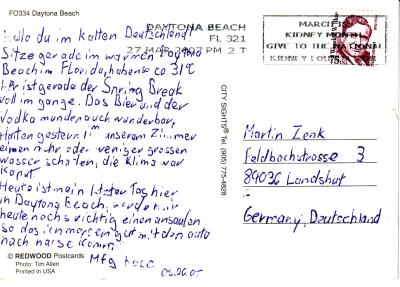 FO334 Daytona Beach
Hallo du im kalten Deutschland!
Sitze gerade im warmen Daytona
Beach im Florida, haben so ca 31°C
Hier ist gerade der Spring Break
voll im gange. Das Bier und der
Vodka munden auch wunderbar,
Hatten gestern in unserem Zimmer
einen mehr oder weniger grossen
wasser schaden, die Klima war
kaput.
Heute ist mein letzter Tag hier
in Daytona Beach, werden wir
heute noch richtig einen ansaufen
so das ich morgen gut mit dem auto
nach hause komm.
Mfg
03.26.07
© REDWOOD Postcards
Photo: Tim Allen
Printed in USA
CITY SIGHTS® Tel. (905) 775-4828
DAYTONA BEACH
FL 321
27 MAR 2007 PM 2 T
MARCH IS
KIDNEY MONTH
GIVE TO THE NATIONAL
KIDNEY
75
Martin Zenk
Feldbachstrosse 3
84036 Landshut
Germany, Deutschland